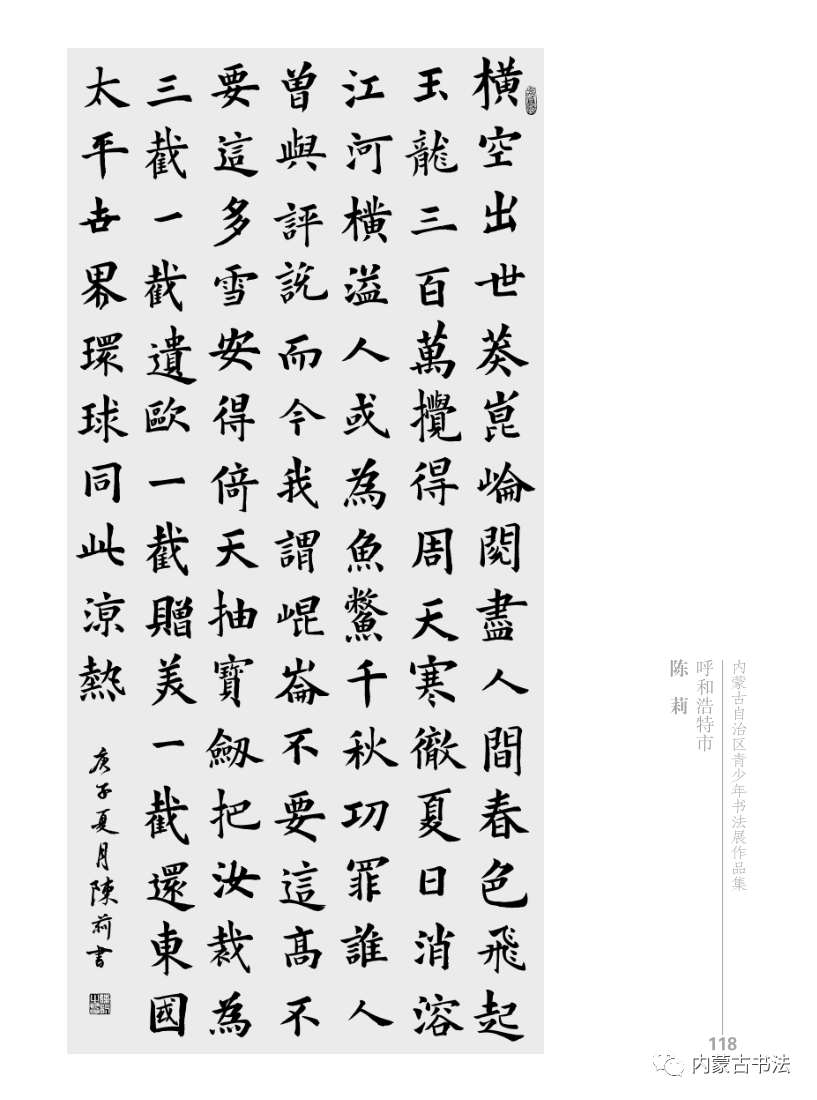 橫空出世莽崑崘閱盡人間春色飛起
玉龍三百萬攪得周天寒徹夏日消溶
江河橫溢人或為魚鱉千秋功罪誰人
曾與評說而今我謂崐崙不要這高不
要這多雪安得倚天抽寶劒把汝裁為
三截一截遺歐一截贈美一截還東國
太平世界環球同此涼熱
庚子夏月陳莉書
内蒙古自治区青少年书法展作品集
呼和浩特市
陈莉
118
内蒙古书法